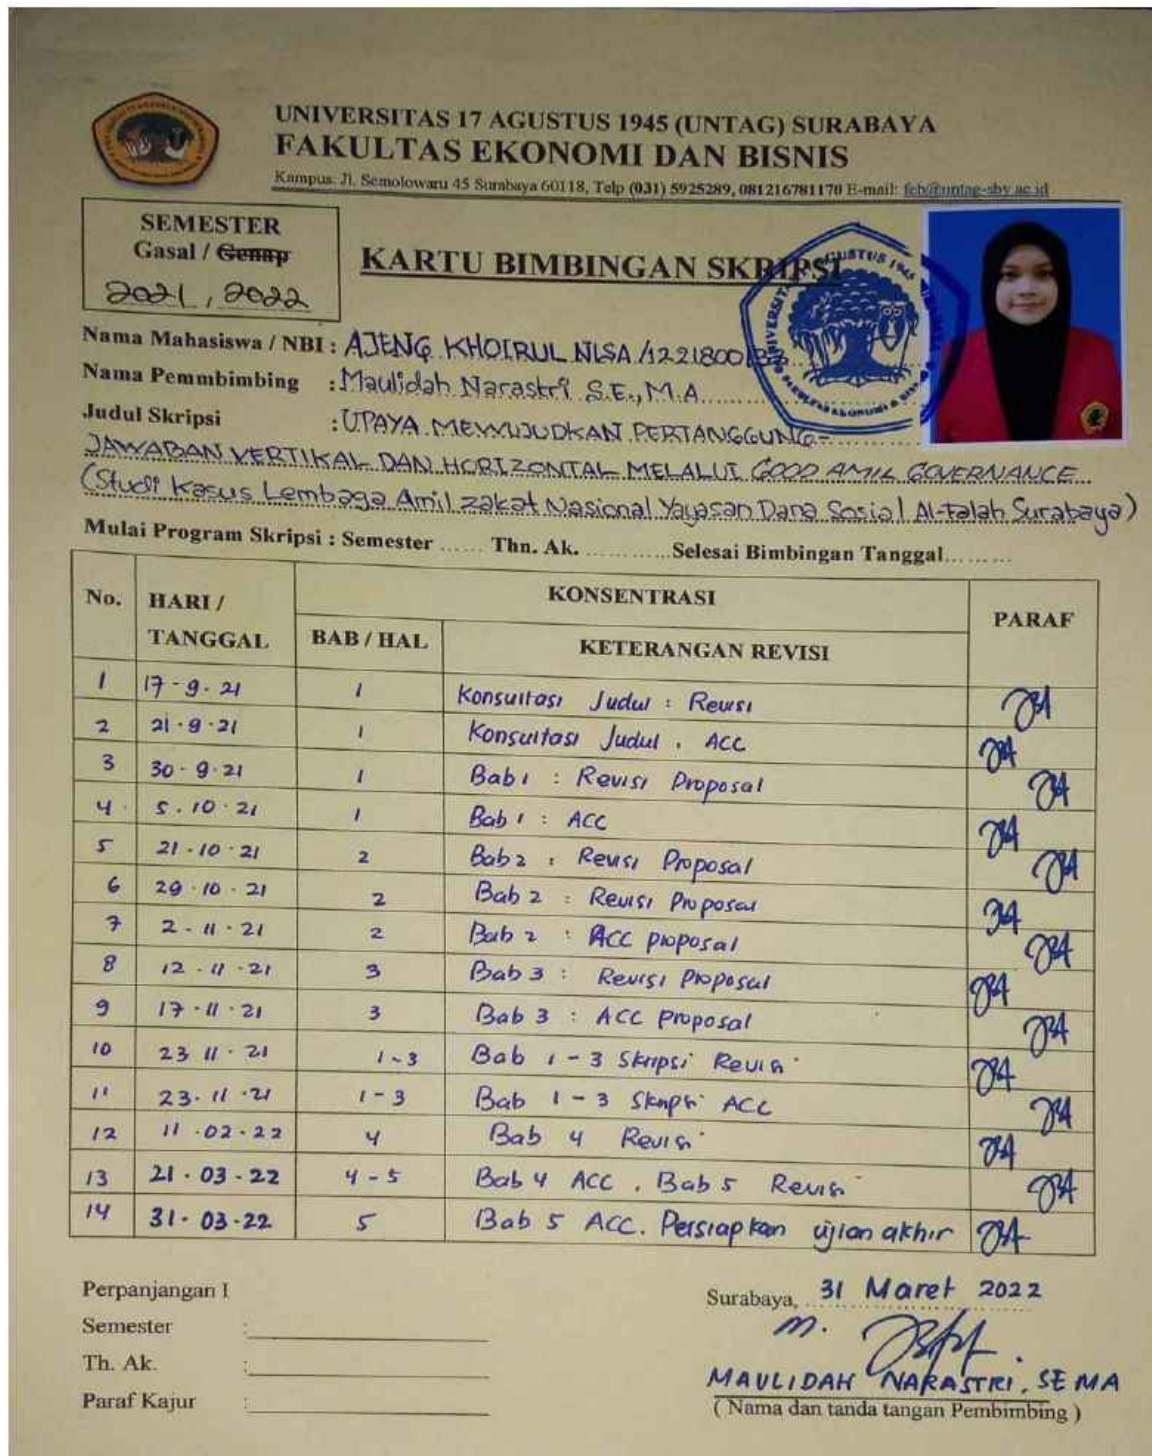 UNIVERSITAS 17 AGUSTUS 1945 (UNTAG) SURABAYA
FAKULTAS EKONOMI DAN BISNIS
Kampus: Jl. Semolowaru 45 Surabaya 60118, Telp (031) 5925289, 081216781170 E-mail: feb@untag-sby.ac.id
SEMESTER
Gasal / Genap
2021, 2022
KARTU BIMBINGAN SKRIPSI
Nama Mahasiswa / NBI : AJENG KHOIRUL NISA /1221800133
Nama Pemmbimbing : Maulidah Narastri S.E., M.A
Judul Skripsi : UPAYA MEWUJUDKAN PERTANGGUNG-
JAWABAN VERTIKAL DAN HORIZONTAL MELALUI GOOD AMIL GOVERNANCE
(Studi Kasus Lembaga Amil zakat Nasional Yayasan Dana Sosial Al-Falah Surabaya)
Mulai Program Skripsi : Semester ...... Thn. Ak. ............ Selesai Bimbingan Tanggal.........
No. HARI / TANGGAL KONSENTRASI PARAF
BAB / HAL KETERANGAN REVISI
1 17-9-21 1 Konsultasi Judul : Revisi
2 21-9-21 1 Konsultasi Judul . ACC
3 30-9-21 1 Bab 1 : Revisi Proposal
4 5.10.21 1 Bab 1 : ACC
5 21-10-21 2 Bab 2 : Revisi Proposal
6 29-10-21 2 Bab 2 : Revisi Proposal
7 2-11-21 2 Bab 2 : ACC proposal
8 12-11-21 3 Bab 3 : Revisi Proposal
9 17-11-21 3 Bab 3 : ACC Proposal
10 23 11-21 1-3 Bab 1-3 Skripsi Revisi
11 23-11-21 1-3 Bab 1-3 Skripsi ACC
12 11-02-22 4 Bab 4 Revisi
13 21-03-22 4-5 Bab 4 ACC, Bab 5 Revisi
14 31-03-22 5 Bab 5 ACC. Persiapkan ujian akhir
Perpanjangan I
Semester :
Th. Ak. :
Paraf Kajur :
Surabaya, 31 Maret 2022
MAULIDAH NARASTRI, SE MA
( Nama dan tanda tangan Pembimbing )